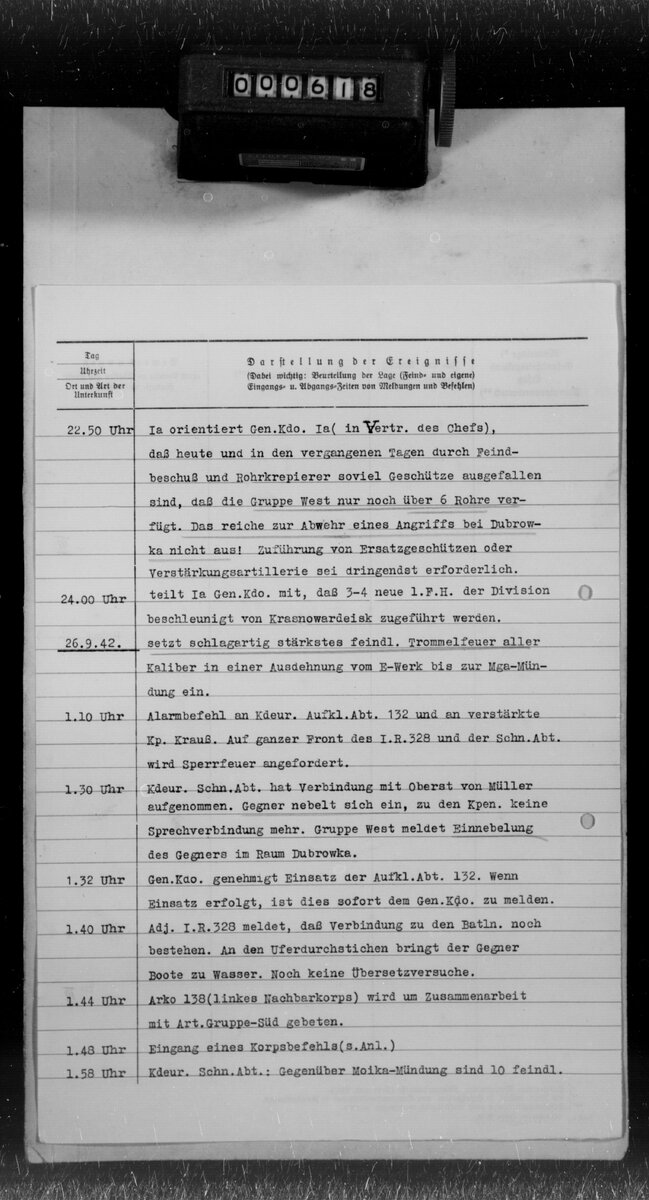 000618
Tag
Uhrzeit
Ort und Art der
Unterkunft
Darstellung der Ereignisse
(Dabei wichtig: Beurteilung der Lage (Feind- und eigene)
Eingangs- u. Abgangs-Zeiten von Meldungen und Befehlen)
22.50 Uhr Ia orientiert Gen.Kdo. Ia( in Vertr. des Chefs),
daß heute und in den vergangenen Tagen durch Feind-
beschuß und Rohrkrepierer soviel Geschütze ausgefallen
sind, daß die Gruppe West nur noch über 6 Rohre ver-
fügt. Das reiche zur Abwehr eines Angriffs bei Dubrow-
ka nicht aus! Zuführung von Ersatzgeschützen oder
Verstärkungsartillerie sei dringendst erforderlich.
24.00 Uhr teilt Ia Gen.Kdo. mit, daß 3-4 neue l.F.H. der Division
beschleunigt von Krasnowardeisk zugeführt werden.
26.9.42. setzt schlagartig stärkstes feindl. Trommelfeuer aller
Kaliber in einer Ausdehnung vom E-Werk bis zur Mga-Mün-
dung ein.
1.10 Uhr Alarmbefehl an Kdeur. Aufkl.Abt. 132 und an verstärkte
Kp. Krauß. Auf ganzer Front des I.R.328 und der Schn.Abt.
wird Sperrfeuer angefordert.
1.30 Uhr Kdeur. Schn.Abt. hat Verbindung mit Oberst von Müller
aufgenommen. Gegner nebelt sich ein, zu den Kpen. keine
Sprechverbindung mehr. Gruppe West meldet Einnebelung
des Gegners im Raum Dubrowka.
1.32 Uhr Gen.Kdo. genehmigt Einsatz der Aufkl.Abt. 132. Wenn
Einsatz erfolgt, ist dies sofort dem Gen.Kdo. zu melden.
1.40 Uhr Adj. I.R.328 meldet, daß Verbindung zu den Batln. noch
bestehen. An den Uferdurchstichen bringt der Gegner
Boote zu Wasser. Noch keine Übersetzversuche.
1.44 Uhr Arko 138(linkes Nachbarkorps) wird um Zusammenarbeit
mit Art.Gruppe-Süd gebeten.
1.48 Uhr Eingang eines Korpsbefehls(s.Anl.)
1.58 Uhr Kdeur. Schn.Abt.: Gegenüber Moika-Mündung sind 10 feindl.